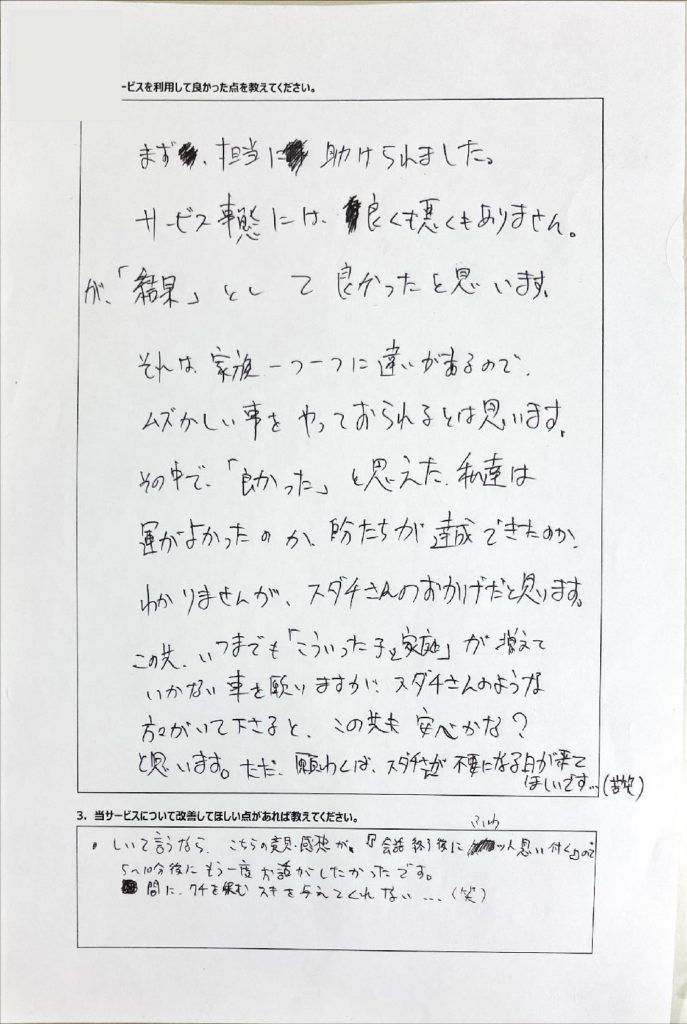 ービスを利用して良かった点を教えてください。
まず、担当に助けられました。
サービス事態には、良くも悪くもありません。
が、「結果」として良かったと思います。
それは家族一つ一つに違いがあるので、
ムズかしい事をやっておられるとは思います。
その中で、「良かった」と思えた、私達は
運がよかったのか、自分たちが達成できたのか、
わかりませんが、スダチさんのおかげだと思います。
この先、いつまでも「こういった子と家庭」が増えて
いかない事を願いますが、スダチさんのような
方々がいて下さると、この先も安心かな?
と思います。ただ、願わくば、スダチさんが不要になる日が来て
ほしいです…
3、当サービスについて改善してほしい点があれば教えてください。
・しいて言うなら、こちらの意見・感想が、『会話終了後に思い付く』ので
5~10分後にもう一度お話がしたかったです。
間に、クチを挟むスキを与えてくれない…(笑)